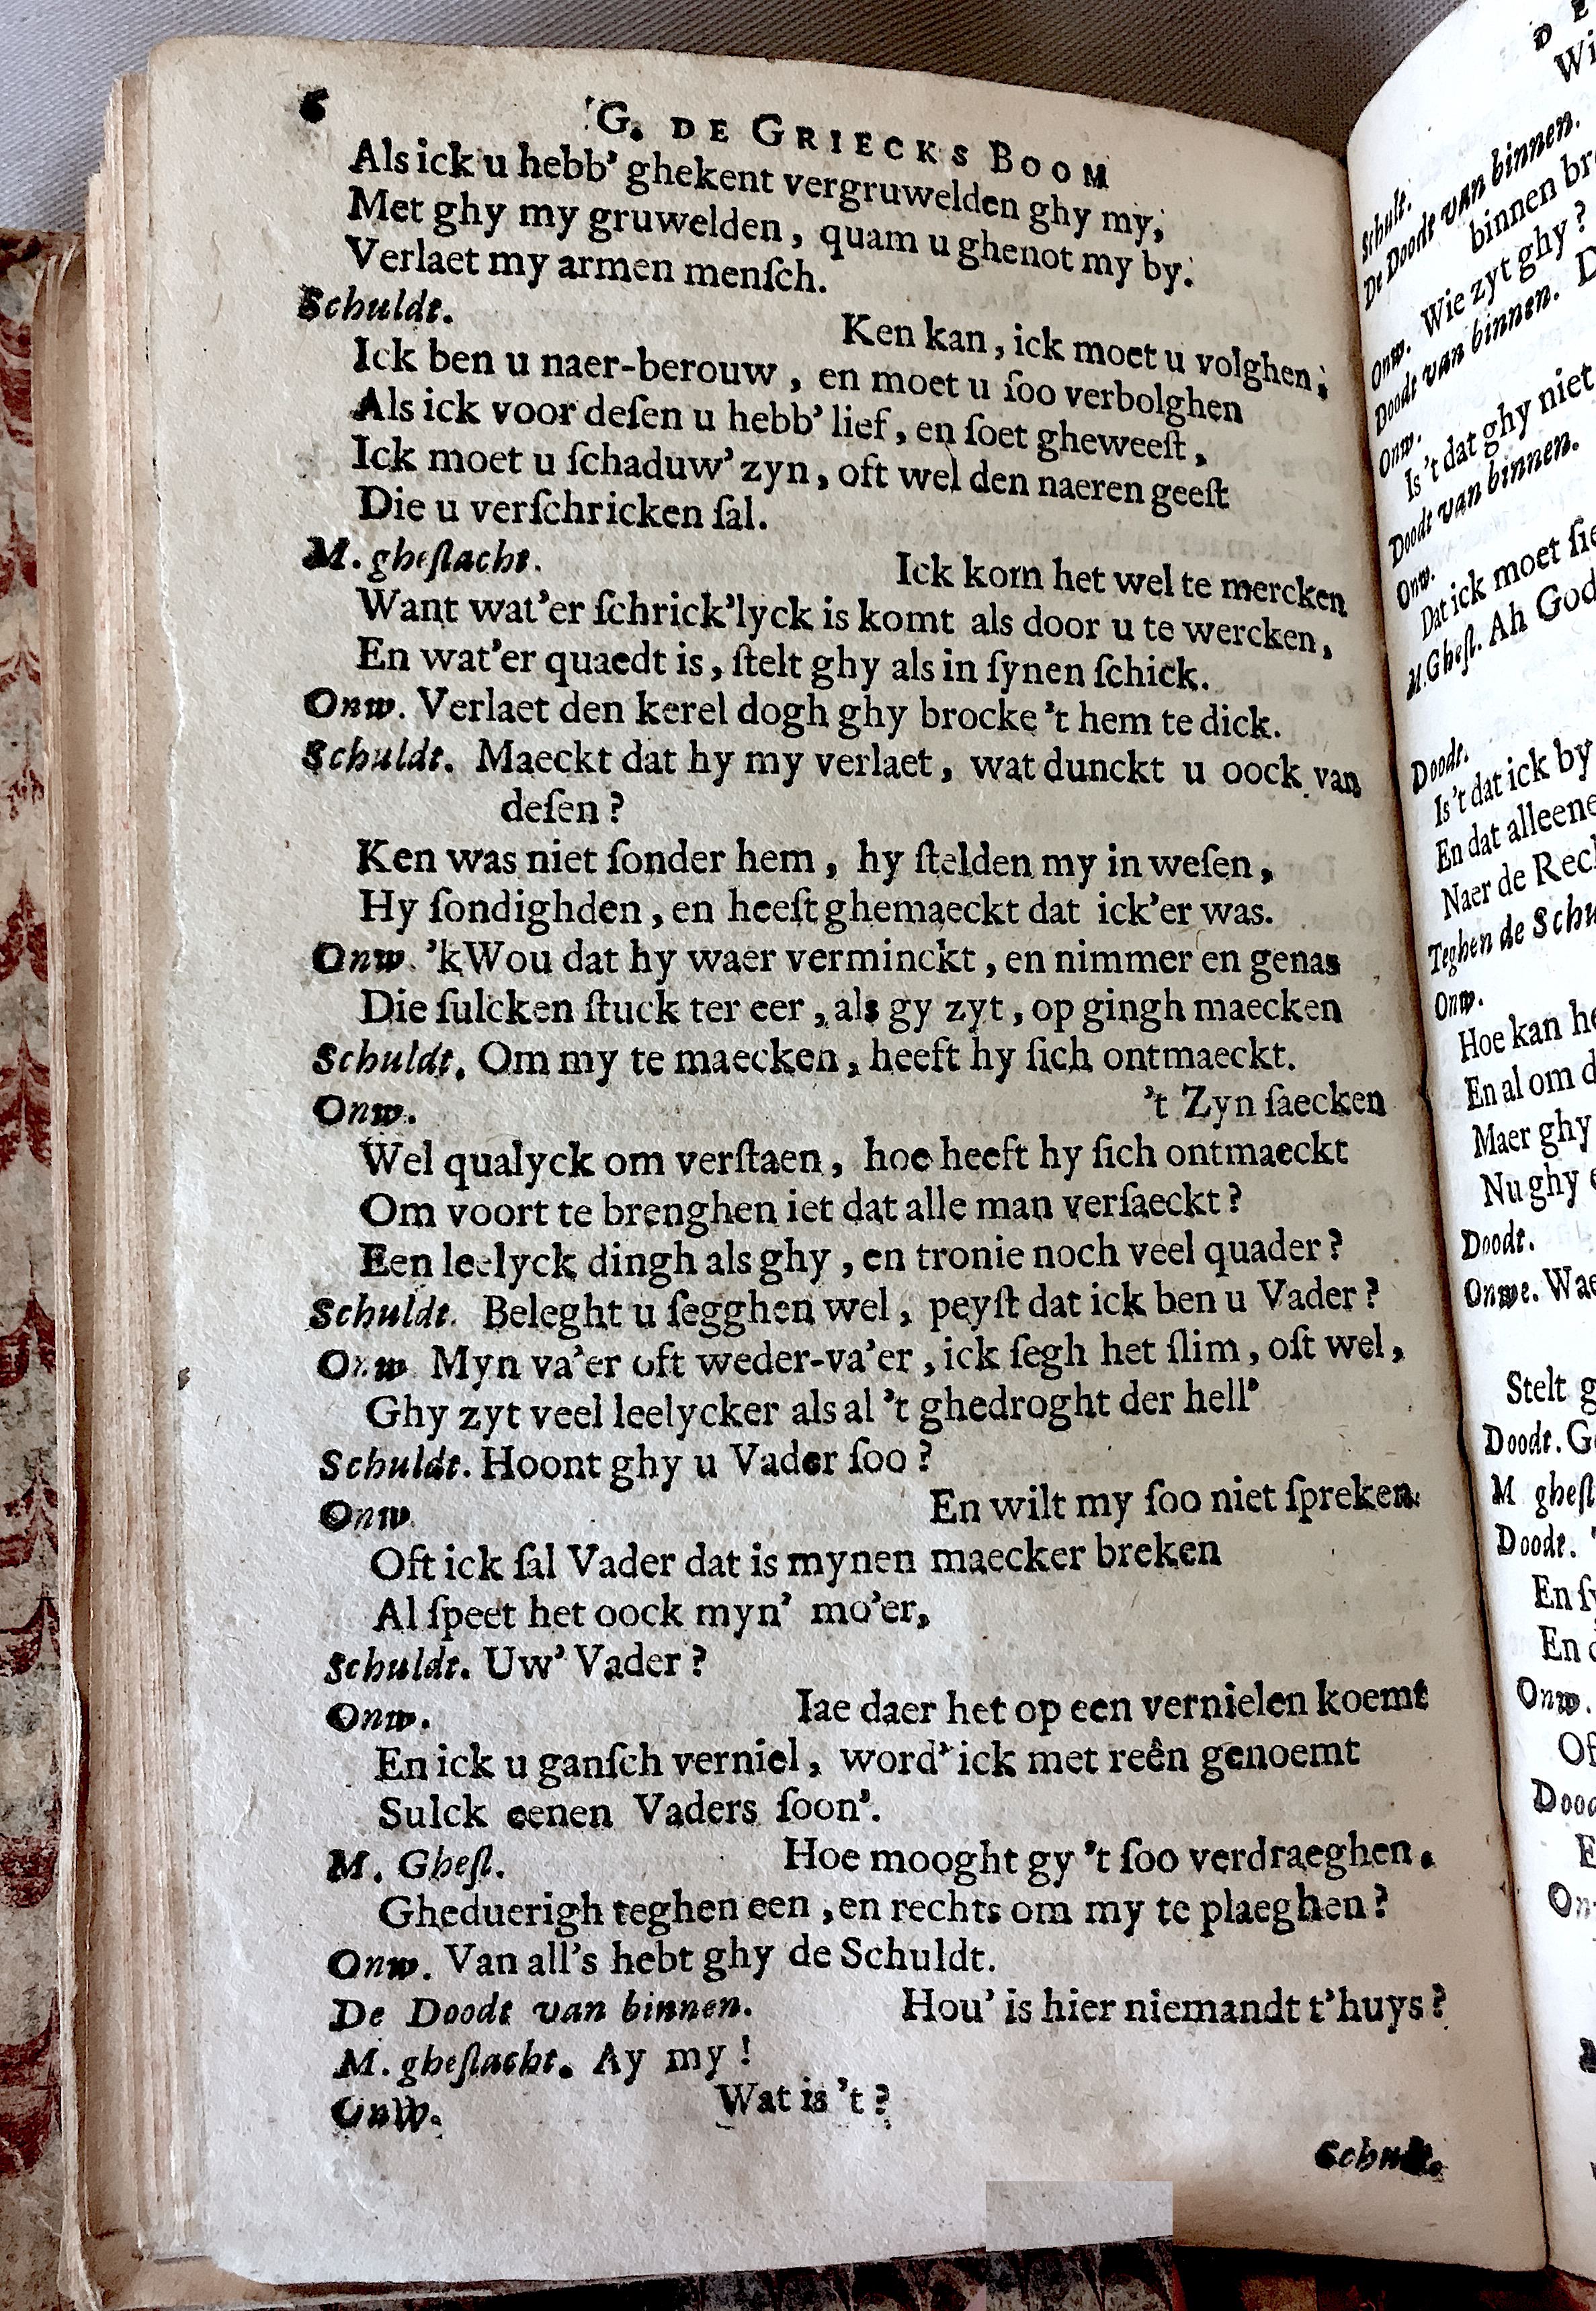 6 G. DE GRIECKS BOOM
Als ick u hebb' ghekent vergruwelden ghy my,
Met ghy my gruwelden, quam u ghenot my by.
Verlaet my armen menſch.
Schuldt. Ken kan, ick moet u volghen;
Ick ben u naer-berouw, en moet u ſoo verbolghen
Als ick voor deſen u hebb' lief, en ſoet gheweeſt,
Ick moet u ſchaduw' zyn, oft wel den naeren geeſt
Die u verſchricken ſal.
M. gheſlacht. Ick kom het wel te mercken
Want wat'er ſchrick'lyck is komt als door u te wercken,
En wat'er quaedt is, ſtelt ghy als in ſynen ſchick.
Onw. Verlaet den kerel dogh ghy brocke 't hem te dick.
Schuldt. Maeckt dat hy my verlaet, wat dunckt u oock van
deſen?
Ken was niet ſonder hem, hy ſtelden my in weſen,
Hy ſondighden, en heeft ghemaeckt dat ick'er was.
Onw. 'k Wou dat hy waer verminckt, en nimmer en genas
Die ſulcken ſtuck ter eer, als gy zyt, op gingh maecken
Schuldt. Om my te maecken, heeft hy ſich ontmaeckt.
Onw. 't Zyn ſaecken
Wel qualyck om verſtaen, hoe heeft hy ſich ontmaeckt
Om voort te brenghen iet dat alle man verſaeckt?
Een leelyck dingh als ghy, en tronie noch veel quader?
Schuldt. Beleght u ſegghen wel, peyſt dat ick ben u Vader?
Onw. Myn va'er oft weder-va'er, ick ſegh het ſlim, oft wel,
Ghy zyt veel leelycker als al 't ghedroght der hell'
Schuldt. Hoont ghy u Vader ſoo?
Onw. En wilt my ſoo niet ſpreken.
Oft ick ſal Vader dat is mynen maecker breken
Al ſpeet het oock myn' mo'er,
Schuldt. Uw' Vader?
Onw. Iae daer het op een vernielen koemt
En ick u ganſch verniel, word' ick met reên genoemt
Sulck eenen Vaders ſoon'.
M. Gheſl. Hoe mooght gy 't ſoo verdraeghen.
Gheduerigh teghen een, en rechts om my te plaeghen?
Onw. Van all's hebt ghy de Schuldt.
De Doodt van binnen. Hou' is hier niemandt t'huys?
M. gheſlacht. Ay my!
Onw. Wat is 't?
Schult.
DE
Wi
Schult.
De Doodt van binnen.
binnen br
Onw. Wie zyt ghy?
Doodt van binnen. D
Onw.
Is 't dat ghy niet
Doodt van binnen.
Onw.
Dat ick moet ſie
M. Gheſl. Ah God
Doodt.
Is 't dat ick by
En dat alleene
Naer de Rech
Teghen de Schu
Onw.
Hoe kan he
En al om d
Maer ghy
Nu ghy e
Doodt.
Onwe. Wae
Stelt g
Doodt. G
M gheſl
Doodt.
En ſy
En
Onw.
Of
Dood
E
On